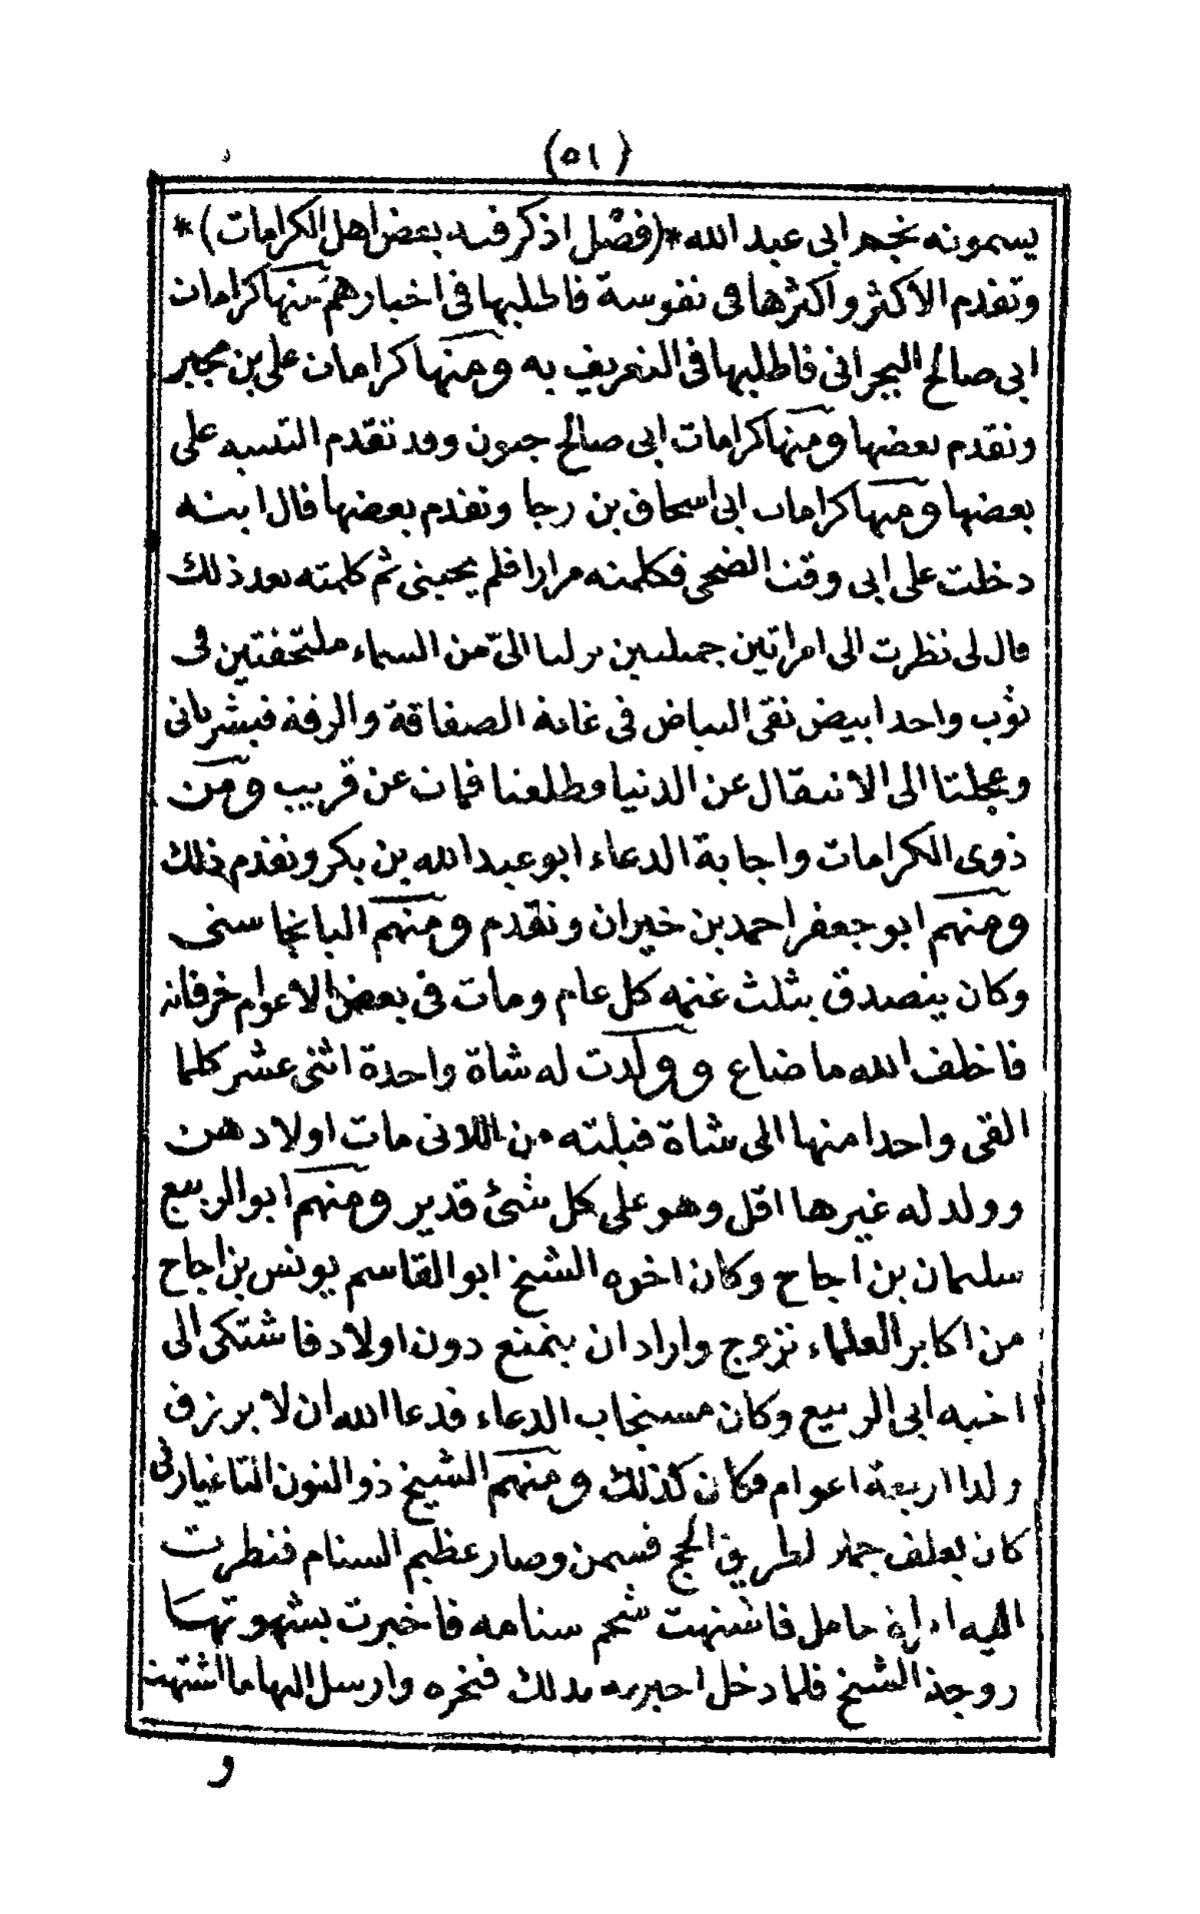 (٥١)
يسمونه نجم ابى عبد الله *(فصل اذكر فيه بعض اهل الكرامات)*
وتقدم الاكثر واكثرها فى نفوسة فاطلبها فى اخبارهم ومنها كرامات
ابى صالح اليجرانى فاطلبها فى التعريف به ومنها كرامات على بن مجبر
وتقدم بعضها ومنها كرامات ابى صالح جنون وقد تقدم التنبيه على
بعضها ومنها كرامات ابى اسحاق بن رجا وتقدم بعضها قال ابنه
دخلت على ابى وقت الضحى فكلمته مرارا فلم يجبنى ثم كلمته بعد ذلك
قال لى نظرت الى امراتين جميلتين نزلتا الىّ من السماء ملتحفتين فى
ثوب واحد ابيض نقى البياض فى غاية الصفاقة والرقة فبشرتانى
وعجلتا الى الانتقال عن الدنيا وطلعتا فمات عن قريب ومن
ذوى الكرامات واجابة الدعاء ابو عبد الله بن بكر وتقدم ذلك
ومنهم ابو جعفر احمد بن خيران وتقدم ومنهم الياجاسنى
وكان يتصدق بثلث غنمه كل عام ومات فى بعض الاعوام خرفانه
فاخلف الله ما ضاع وولدت له شاة واحدة اثنى عشر كلما
القى واحدا منها الى شاة قبلته من اللاتى مات اولادهن
وولد له غيرها اقل وهو على كل شئ قدير ومنهم ابو الربيع
سليمان بن اجاج وكان اخوه الشيخ ابو القاسم يونس بن اجاج
من اكابر العلماء تزوج واراد ان يتمتع دون اولاد فاشتكى الى
اخيه ابى الربيع وكان مستجاب الدعاء فدعا الله ان لا يرزق
ولدا اربعة اعوام فكان كذلك ومنهم الشيخ ذو النون التاغيارتى
كان يعلف جملا لطريق الحج فسمن وصار عظيم السنام فنظرت
اليه امراة حامل فاشتهت شحم سنامه فاخبرت بشهوتها
زوجة الشيخ فلما دخل اخبرته بذلك فنحره وارسل اليها ما اشتهت
و